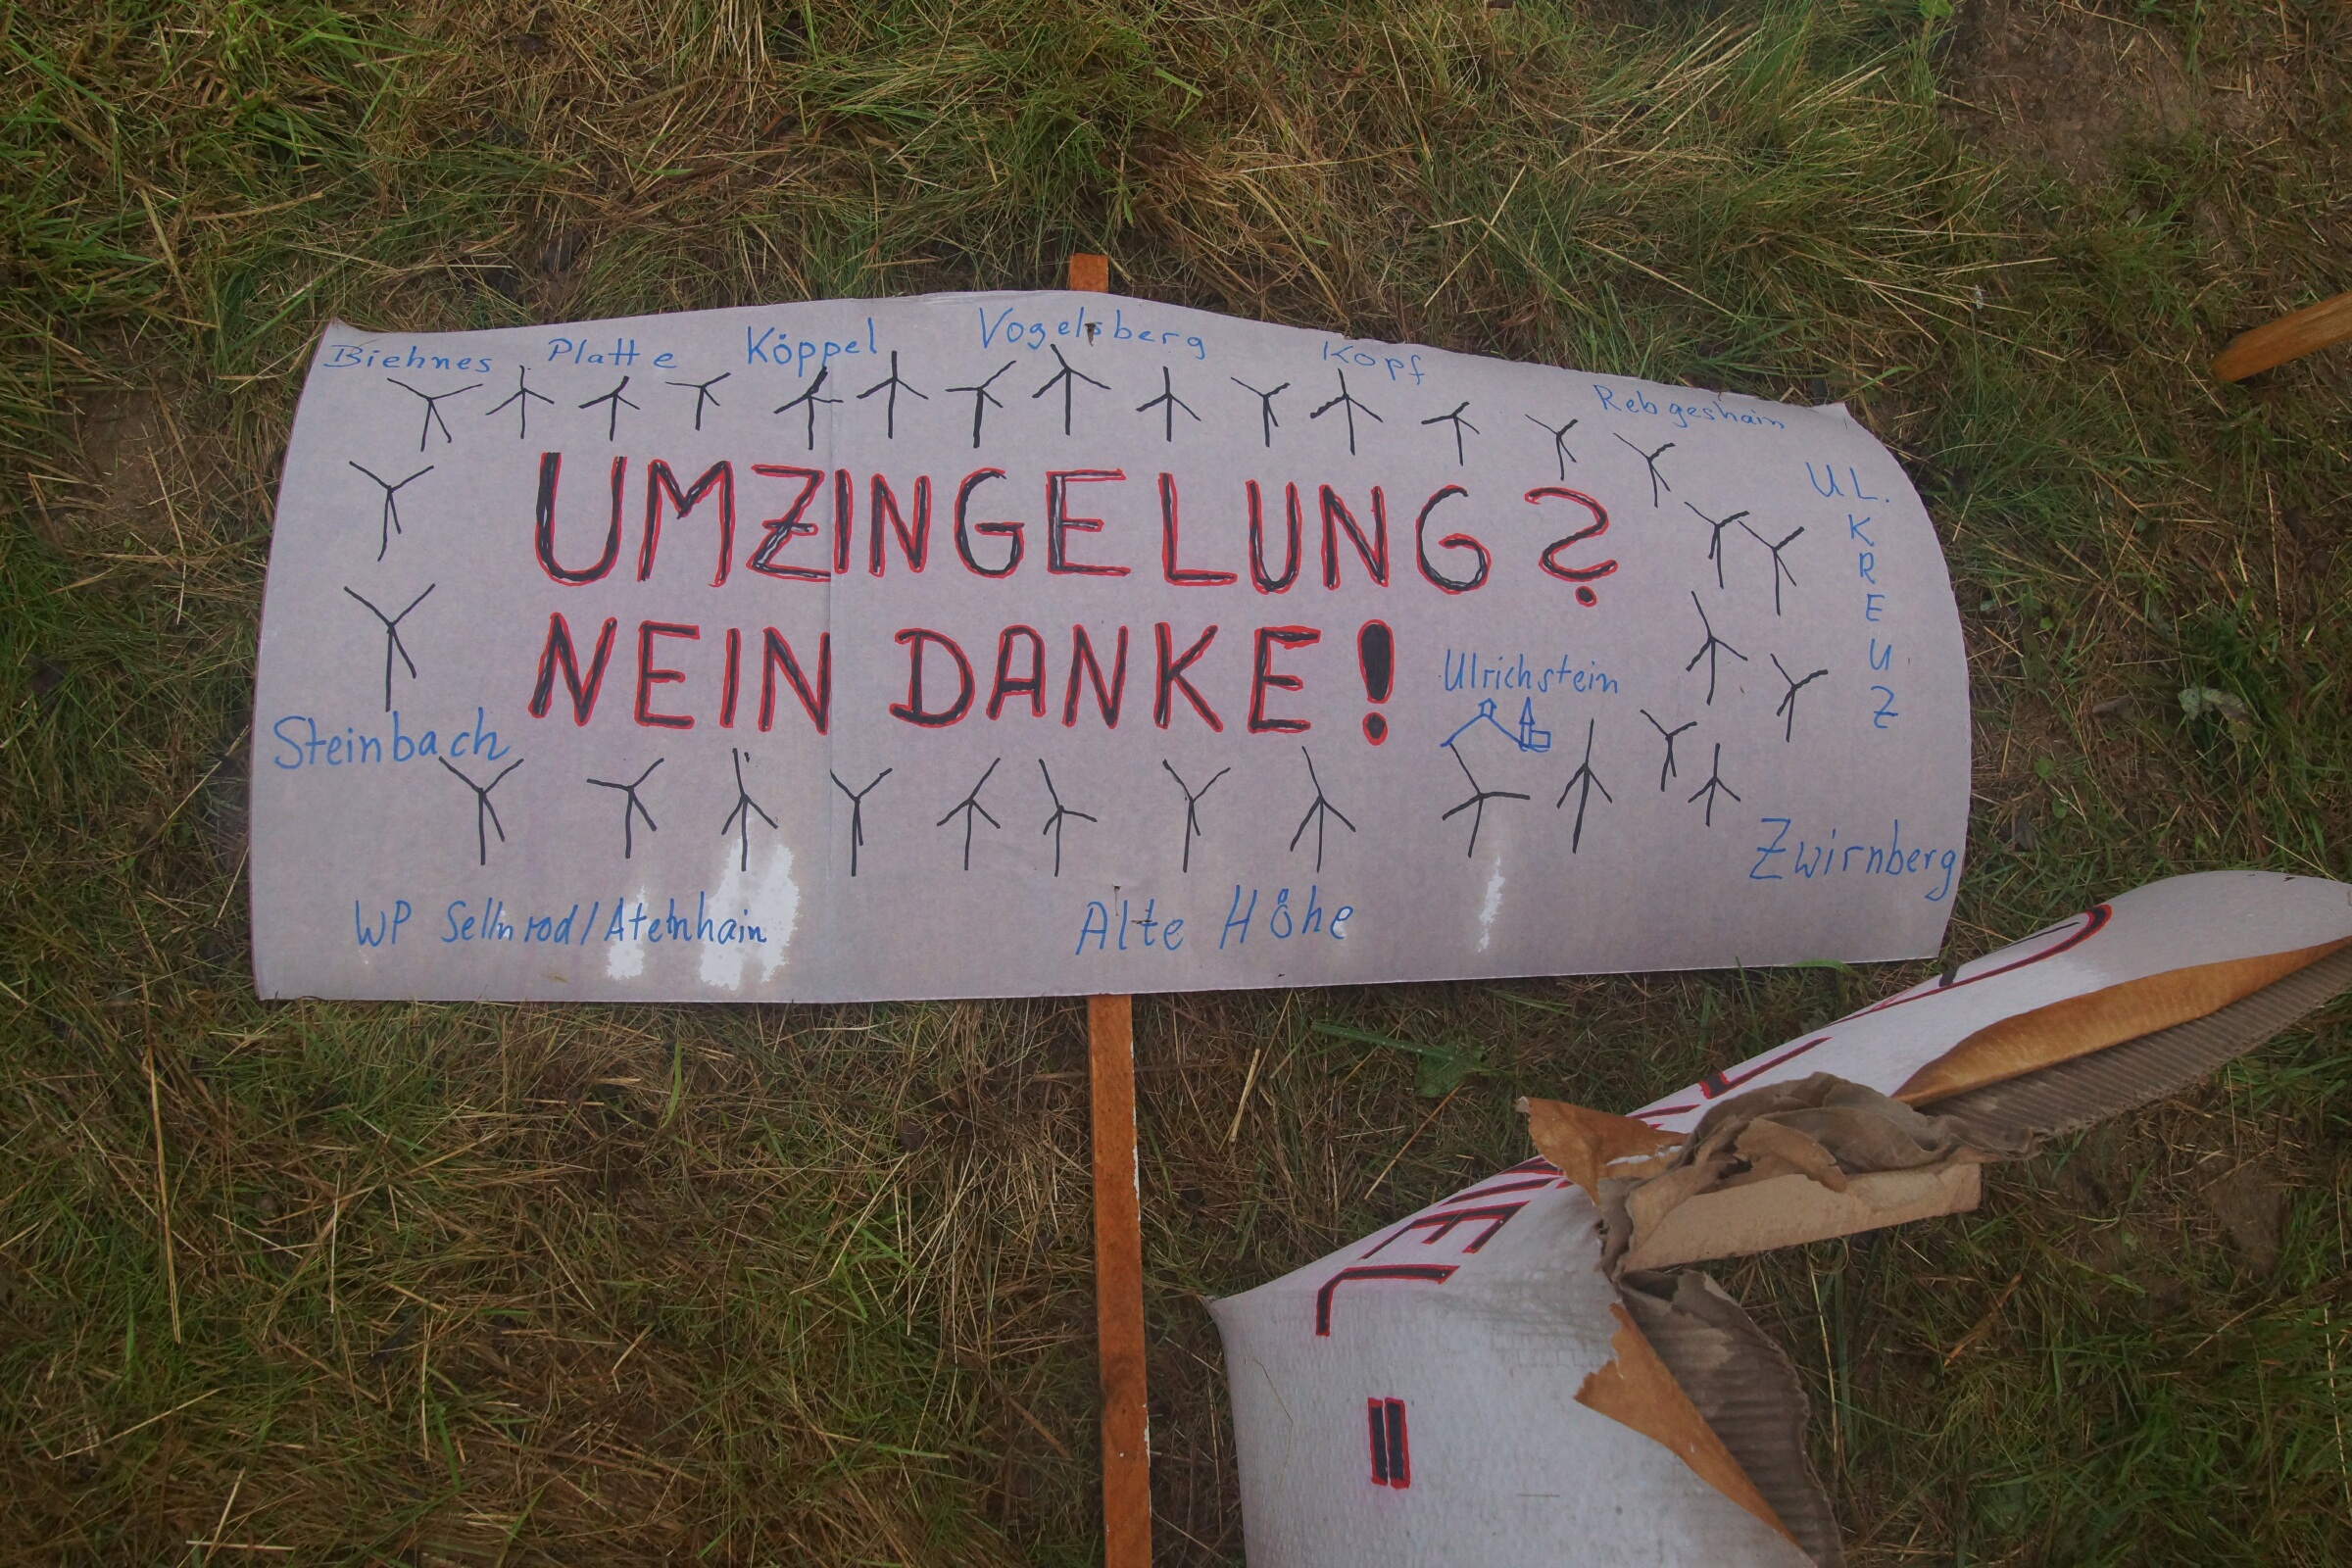 Biehnes Platte Köppel Vogelsberg Kopf
Rebgeshain
UL.
KREUZ
UMZINGELUNG?
NEIN DANKE!
Ulrichstein
Steinbach
Zwirnberg
WP Sellnrod/Atenhain
Alte Höhe